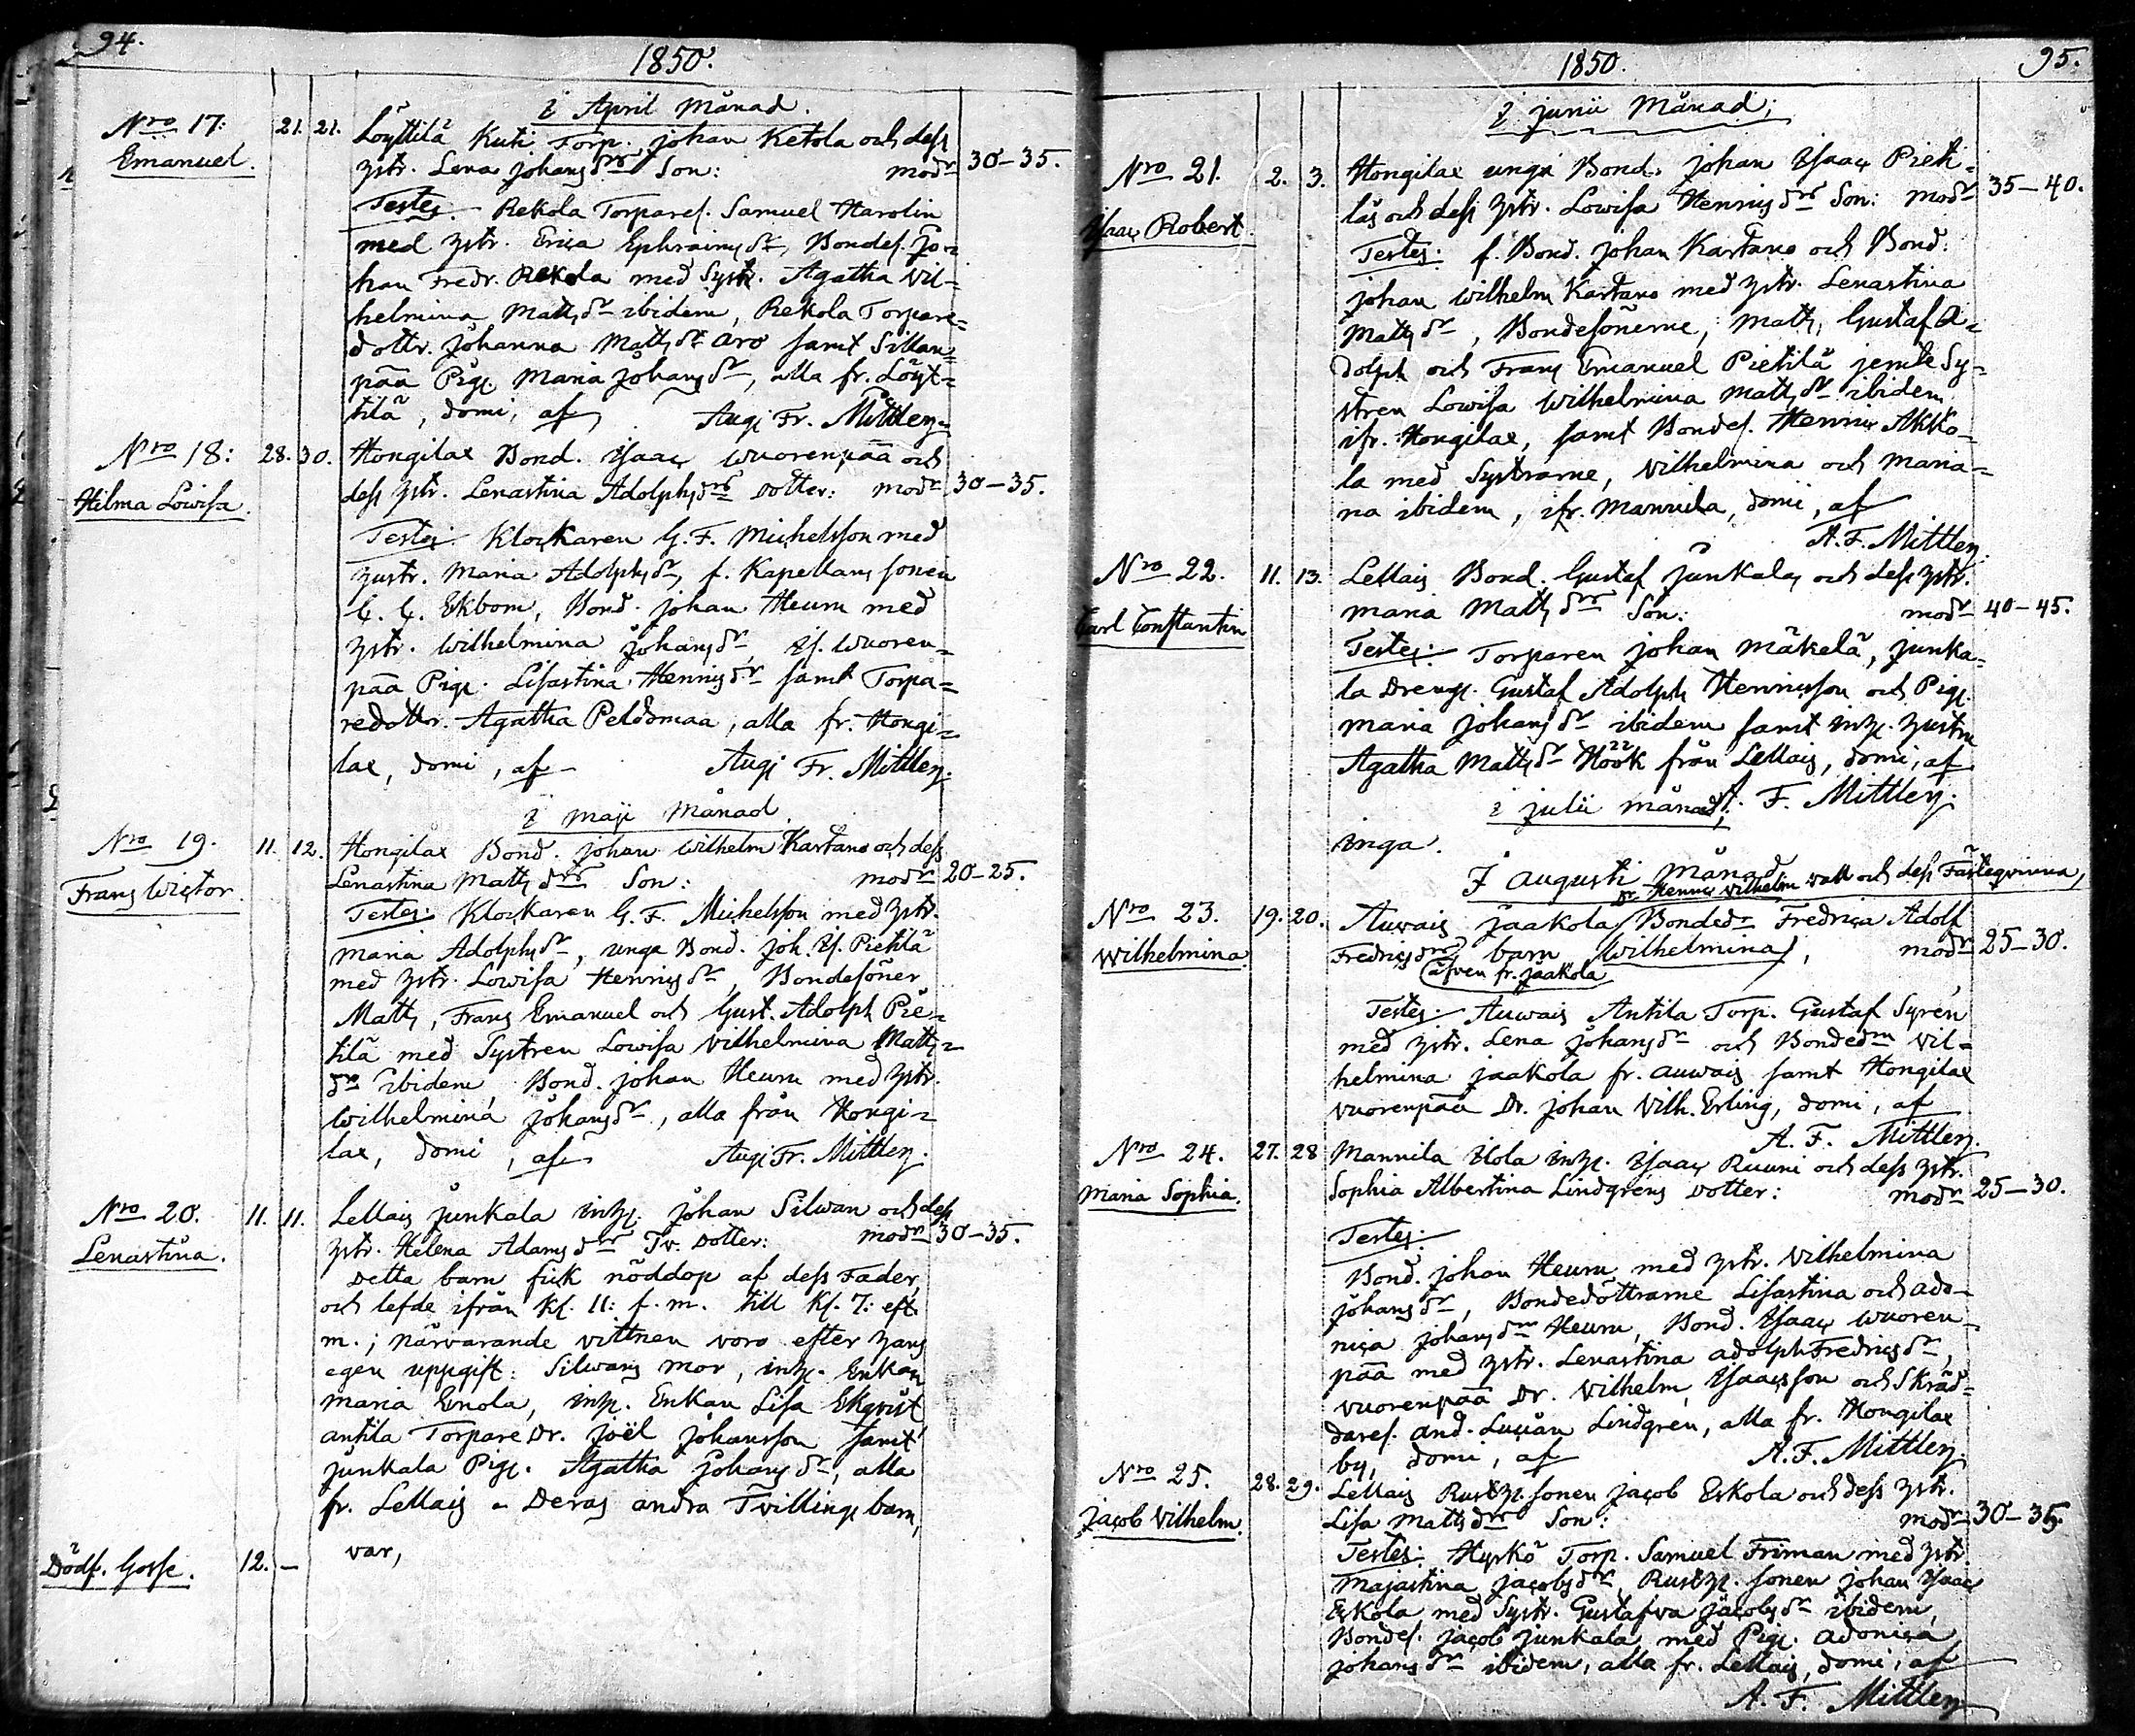 94.
1850.
i April Månad.
Nro 17: 21. 21. Löyttilä Kuti Torp. Johan Ketola och dess
Emanuel. Hstr. Lena Johansdr Son: modr 30-35.
Testes. Rekola Torpares. Samuel Harolin
med Hstr. Erica Ephraimsdr, Bondes. Jo-
han Fredr. Rekola med Systr. Agatha Vil-
helmina Mattsdr ibidem, Rekola Torpare-
dottr. Johanna Mattsdr Aro samt Sillan-
pää Pig. Maria Johansdr, alla fr. Löyt-
tilä, domi, af Augt Fr. Mittler.
Nro 18: 28. 30. Hongilax Bond. Isaac Wuorenpää och
Hilma Lovisa. dess Hstr. Lenastina Adolphsdr Dotter: modr 30-35.
Testes. Klockaren G. F. Michelsson med
Hustr. Maria Adolphsdr, f. Kapellans sonen
C. C. Ekbom, Bond. Johan Heurn med
Hstr. Wilhelmina Johansdr, Is. Wuoren-
pää Pig. Lisastina Hennisdr samt Torpa-
redottr. Agatha Peldomaa, alla fr. Hongi-
lax, domi, af Augt Fr. Mittler.
i Maji Månad.
Nro 19. 11. 12. Hongilax Bond. Johan Wilhelm Kartano och dess
Frans Wictor. Lenastina Mattsdr Son: modr 20-25.
Testes: Klockaren G. F. Michelsson med Hstr.
Maria Adolphsdr, unga Bond. Joh. Is. Pietilä
med Hstr. Lovisa Hennisdr, Bondesöner
Matts, Frans Emanuel och Gust. Adolph Pie-
tilä med Systren Lovisa Vilhelmina Matts-
dr ibidem, Bond. Johan Heurn med Hstr.
Wilhelmina Johansdr, alla från Hongi-
lax, domi, af Augt Fr. Mittler.
Nro 20. 11. 11. Lellais Junkala inh. Johan Silwan och dess
Lenastina. Hstr. Helena Adamsdr Tv. Dotter: modr 30-35.
Detta barn fick nöddop af dess Fader,
och lefde ifrån Kl. 11: f. m. till Kl. 7: eft.
m.; närvarande vittnen voro efter hans
egen uppgift: Silwans mor, inh. Enkan
Maria Enola, inh. Enkan Lisa Ekqvist,
Antila Torpare Dr. Joël Johansson samt
Junkala Pig. Agatha Johansdr, alla
fr. Lellais. Deras andra Tvillinge barn,
Dödf. Gosse. 12. – var,
95.
1850.
i Junii Månad;
Nro 21. 2. 3. Hongilax unga Bond. Johan Isaac Pieti-
Isaac Robert. läs och dess Hstr. Lowisa Hennisdr Son: modr 35-40.
Testes: f. Bond. Johan Kartano och Bond.
Johan Wilhelm Kartano med Hstr. Lenastina
Mattsdr, Bondesönerne, Matts, Gustaf A-
dolph och Frans Emanuel Pietilä jemte Sy-
stren Lowisa Wilhelmina Mattsdr ibidem
ifr. Hongilax, samt Bondes. Hennic Akko-
la med Systrarne, Vilhelmina och Maria-
na ibidem, ifr. Mannila, domi, af
A. F. Mittler.
Nro 22. 11. 13. Lellais Bond. Gustaf Junkalas och dess Hstr.
Carl Constantin Maria Mattsdr Son: modr 40-45.
Testes: Torparen Johan Mäkelä, Junka-
la Dreng. Gustaf Adolph Hennicsson och Pig.
Maria Johansdr ibidem samt inh. Hustru
Agatha Mattsdr Höök från Lellais, domi, af
A. F. Mittler.
i Julii Månad;
inga.
I Augusti Månad
Dr. Hennic Vilhelm Wall och dess Fästeqvinna,
Nro 23. 19. 20. Auwais Jaakola Bondedr Fredrica Adolf
Wilhelmina. Fredricsdrs barn Wilhelmina, modr 25-30.
(äfven fr. Jaakola
Testes: Auwais Antila Torp. Gustaf Syren
med Hstr. Lena Johansdr och Bondedrn Vil-
helmina Jaakola fr. Auwais samt Hongilax
Vuorenpää Dr. Johan Vilh. Erling, domi, af
A. F. Mittler.
Nro 24. 27. 28 Mannila Ilola inh. Isaac Ruuni och dess Hstr.
Maria Sophia. Sophia Albertina Lindgrens Dotter: modr 25-30.
Testes:
Bond. Johan Heurn med Hstr. Vilhelmina
Johansdr, Bondedöttrarne Lisastina och Ado-
nica Johansdr Heurn, Bond. Isaac Wuoren-
pää med Hstr. Lenastina Adolph Fredricsdr,
Vuorenpää Dr. Vilhelm Isaacsson och Skräd-
dares. And. Lucian Lindgren, alla fr. Hongilax
by, domi, af A. F. Mittler.
Nro 25. 28. 29. Lellais Rusth. sonen Jacob Eskola och dess Hstr.
Jacob Vilhelm. Lisa Mattsdr Son: modr 30-35.
Testes: Hyrkö Torp. Samuel Friman med Hstr.
Majastina Jacobsdr, Rusth. sonen Johan Isaac
Eskola med Systr. Gustafva Jacobsdr ibidem,
Bondes. Jacob Junkala med Pig. Adonica
Johansdr ibidem, alla fr. Lellais, domi, af
A. F. Mittler